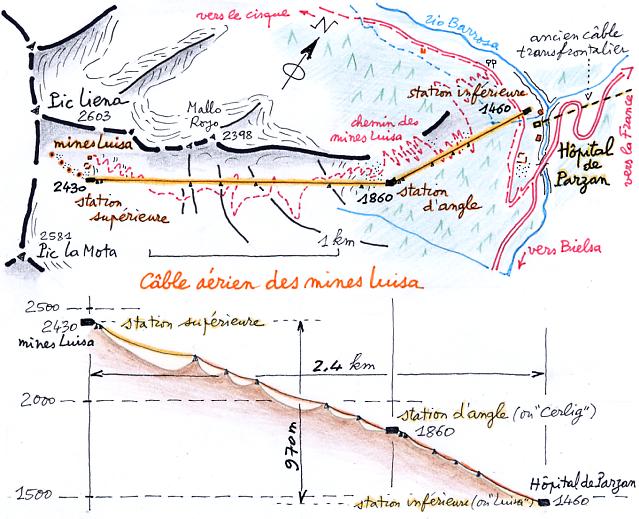 vers le cirque
N
rio Barrosa
ancien câble
transfrontalier
Pic Liena
2603
Mallo
Royo
2398
station inférieure
1460
chemin des
mines Luisa
mines Luisa
Hôpital
de
Parzan
vers la France
2430
station
supérieure
1860
station
d'angle
2581
Pic La Mota
1 km
vers Bielsa
Câble aérien des mines Luisa
2500
2430
mines Luisa
station supérieure
2.4 km
2000
station d'angle (ou "Cerlig")
1860
970m
Hôpital de Parzan
1500
station inférieure (ou "Luisa")
1460